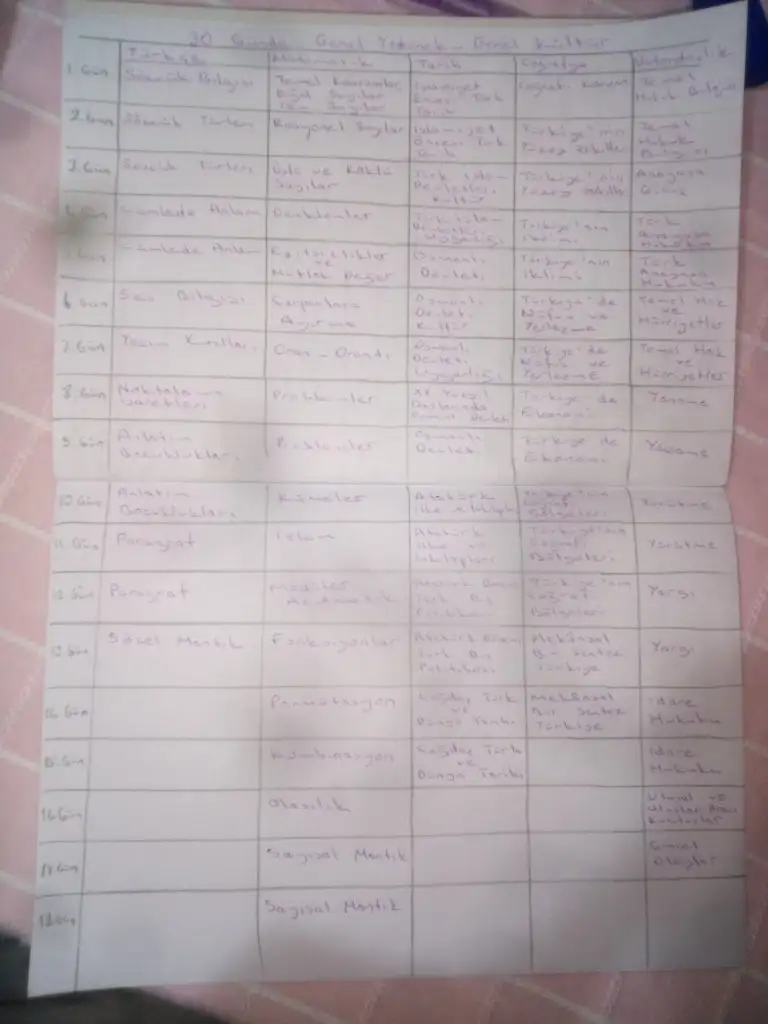 30 Günde Genel Yetenek - Genel Kültür
Türkçe Matematik Tarih Coğrafya Vatandaşlık
1. Gün Sözcük Bilgisi Temel Kavramlar Doğal Sayılar Tam Sayılar İslamiyet Öncesi Türk Tarihi Temel Hukuk Bilgisi
2. Gün Sözcük Türleri Rasyonel Sayılar İslamiyet Öncesi Türk Tarihi Türkiye'nin Yüzey Şekilleri Temel Hukuk Bilgisi
3. Gün Sözcük Türleri Üslü ve Köklü Sayılar Türk İslam Devletleri Kültür Türkiye'nin Yüzey Şekilleri Anayasa
4. Gün Cümlede Anlam Denklemler Türk İslam Devletleri Uygarlığı Türkiye'nin İklimi Türk Anayasa Hukuku
5. Gün Cümlede Anlam Eşitsizlikler ve Mutlak Değer Osmanlı Devleti Türkiye'nin İklimi Türk Anayasa Hukuku
6 Gün Ses Bilgisi Çarpanlara Ayırma Osmanlı Devleti Kültür Türkiye'de Nüfus ve Yerleşme Temel Hak ve Hürriyetler
7. Gün Yazım Kuralları Oran - Orantı Osmanlı Devleti Uygarlığı Türkiye'de Nüfus ve Yerleşme Temel Hak ve Hürriyetler
8. Gün Noktalama İşaretleri Problemler XX Yüzyıl Başlarında Osmanlı Devleti Türkiye'de Ekonomi Yasama
9. Gün Anlatım Bozuklukları Problemler Osmanlı Devleti Türkiye'de Ekonomi Yasama
10. Gün Anlatım Bozuklukları Kümeler Atatürk İlke İnkılapları Türkiye'nin Coğrafi Bölgeleri Yürütme
11. Gün Paragraf İşlem Atatürk İlke ve İnkılapları Türkiye'nin Coğrafi Bölgeleri Yürütme
12. Gün Paragraf Modüler Aritmetik Atatürk Dönemi Türk Dış Politikası Türkiye'nin Coğrafi Bölgeleri Yargı
13. Gün Sözel Mantık Fonksiyonlar Atatürk Dönemi Türk Dış Politikası Mekânsal Bir Sentez Türkiye Yargı
14. Gün Permütasyon Çağdaş Türk ve Dünya Tarihi Mekânsal Bir Sentez Türkiye İdare Hukuku
15. Gün Kombinasyon Çağdaş Türk ve Dünya Tarihi İdare Hukuku
16. Gün Olasılık Ulusal ve Uluslar Arası Kuruluşlar
17. Gün Sayısal Mantık Güncel Olaylar
18. Gün Sayısal Mantık